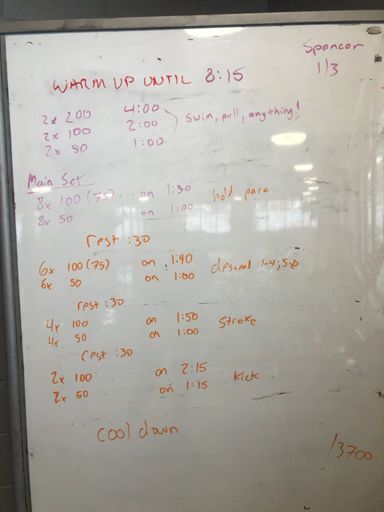 Spencer
1/3
WARM UP UNTIL 8:15
2x 200 4:00
2x 100 2:00 Swim, pull, anything!
2x 50 1:00
Main Set
8x 100 (75) on 1:30 hold pace
8x 50 on 1:00
rest :30
6x 100 (75) on 1:40 descend 1-4; 5-6
6x 50 on 1:00
rest :30
4x 100 on 1:50 Stroke
4x 50 on 1:00
rest :30
2x 100 on 2:15 Kick
2x 50 on 1:15
cool down
/3700